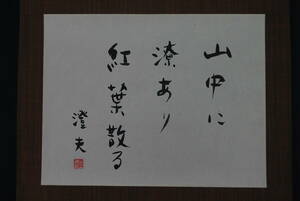 山中に
湶あり
紅葉散る
澄夫